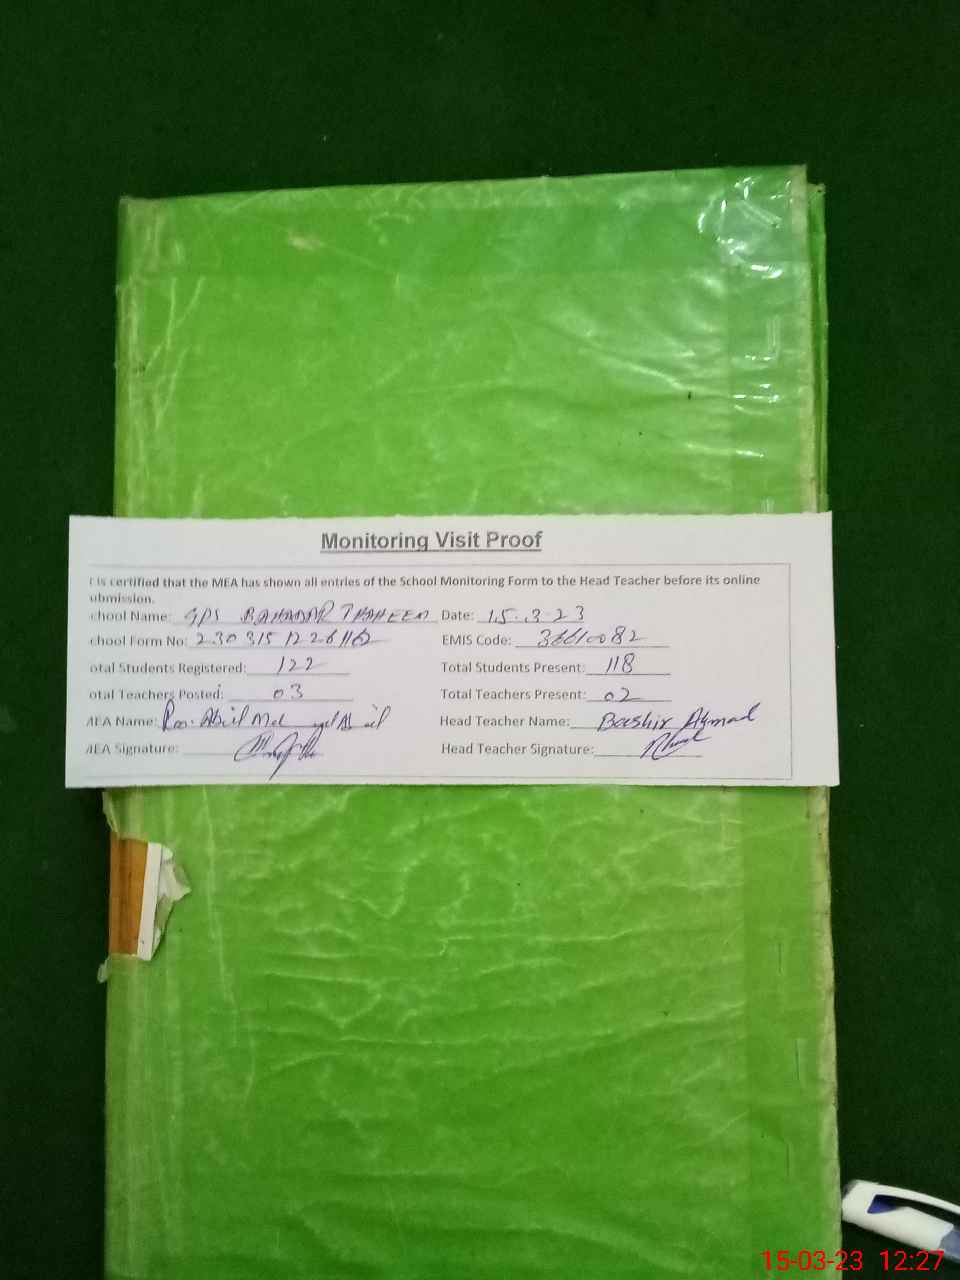 Monitoring Visit Proof
t is certified that the MEA has shown all entries of the School Monitoring Form to the Head Teacher before its online
ubmission.
chool Name: GPS BAHADAR THAHEEM Date: 15.3.23
chool Form No: 230315122261162 EMIS Code: 36610082
otal Students Registered: 122 Total Students Present: 118
otal Teachers Posted: 03 Total Teachers Present: 02
AEA Name: Head Teacher Name: Bashir Ahmad
AEA Signature: Head Teacher Signature:
15-03-23 12:27